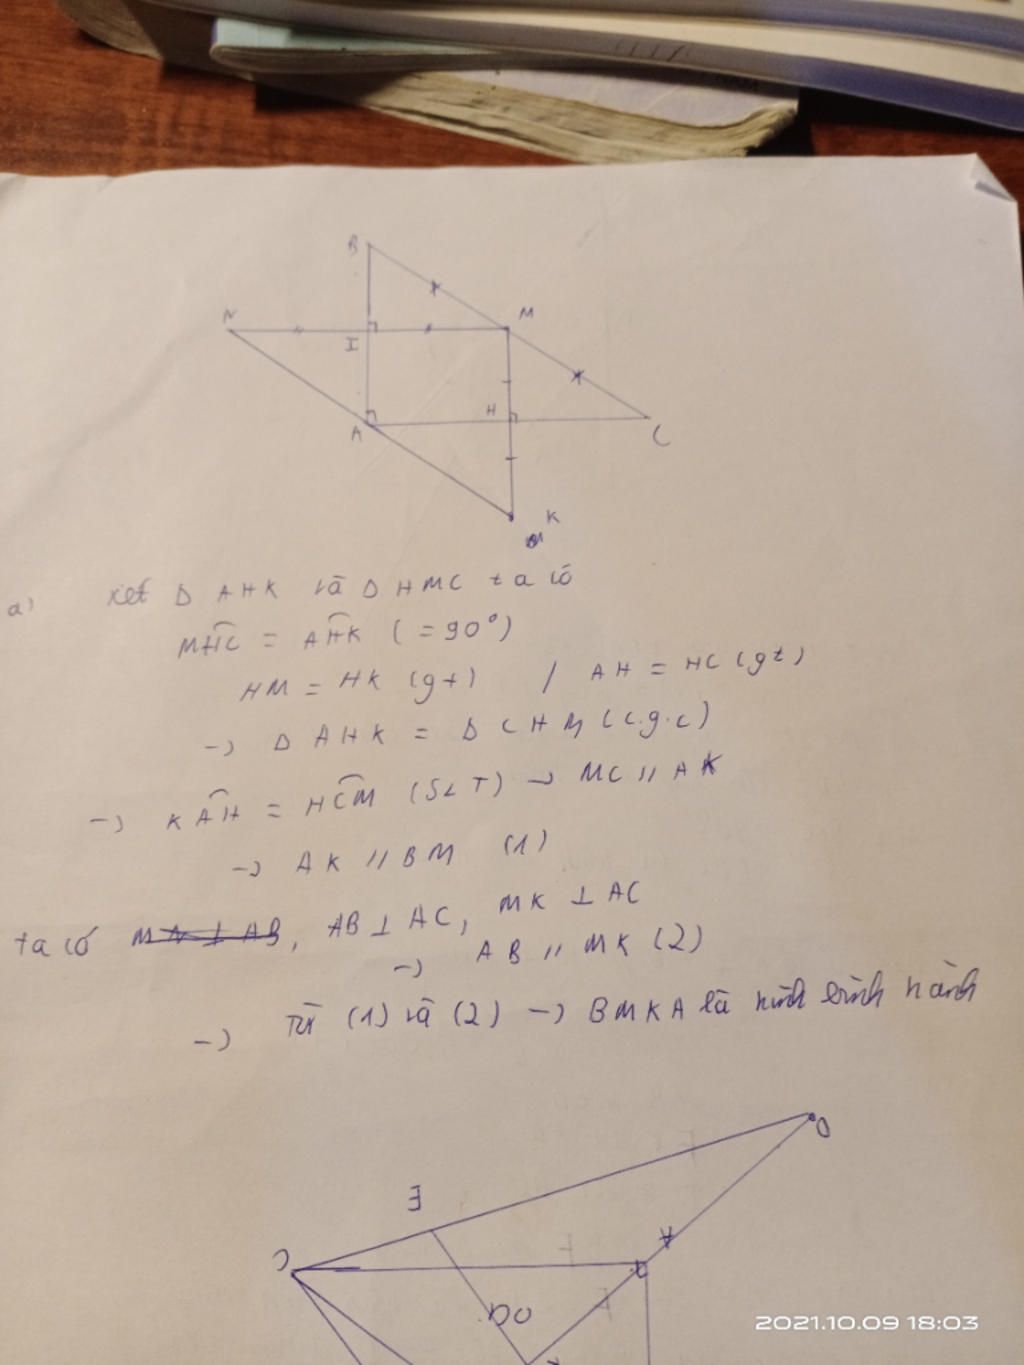 B
N
M
I
A
H
C
K
a) xét Δ AHK và Δ HMC ta có
MHC = AHK ( = 90°)
HM = HK (gt) / AH = HC (gt)
-> Δ AHK = Δ CHM (c.g.c)
-> KAH = HCM (SLT) -> MC // AK
-> AK // BM (1)
ta có MN ⊥ AB, AB ⊥ AC, MK ⊥ AC
-> AB // MK (2)
-> Từ (1) và (2) -> BMKA là hình bình hành
D
E
A
C
2021.10.09 18:03